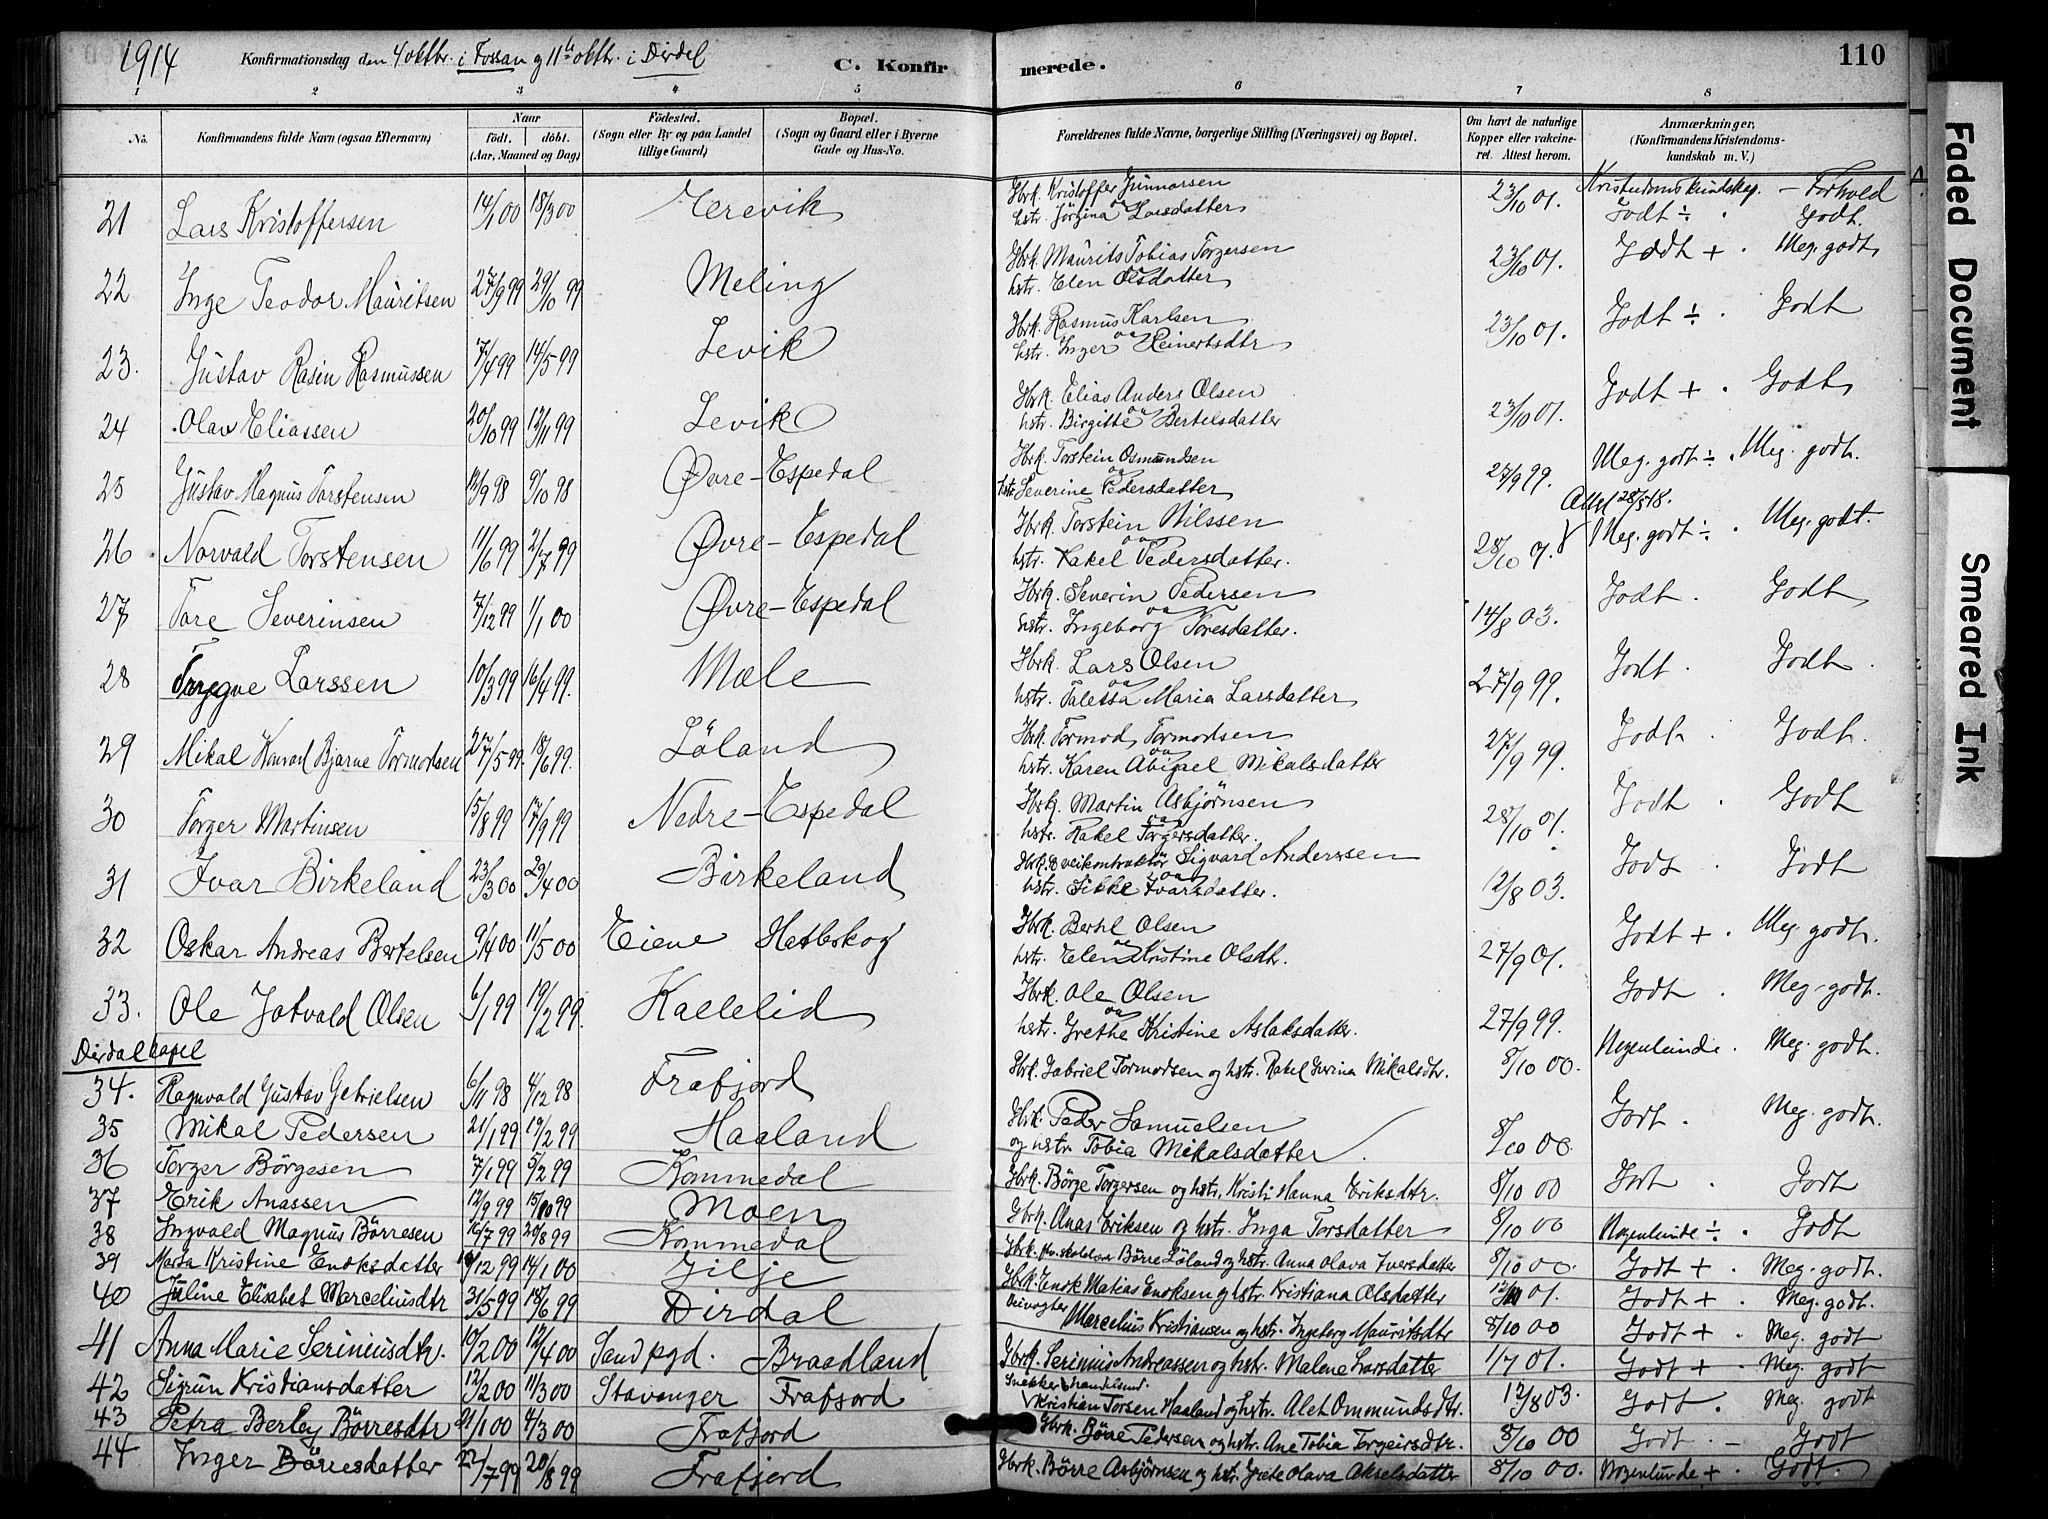 1914
Konfirmationsdag den 4 oktbr. i Fossan og 11te oktbr. i Dirdal
C. Konfirmerede.
110
1 2 3 4 5 6 7 8
No.
Konfirmandens fulde Navn (ogsaa Efternavn)
Naar født. døbt. (Aar, Maaned og Dag)
Fødested. (Sogn eller By og paa Landet tillige Gaard)
Bopæl. (Sogn og Gaard eller i Byerne Gade og Hus-No.
Forældrenes fulde Navne, borgerlige Stilling (Næringsvei) og Bopæl.
Om havt de naturlige Kopper eller vakcineret. Attest herom.
Anmærkninger, (Konfirmandens Kristendomskundskab m. V.)
Kristendomskundskap. – Forhold
21 Lars Kristoffersen 14/1 00 18/3 00 Erevik Gbrk. Kristoffer Gunnarsen og hstr. Jørgina Larsdatter 23/10 01. Godt ÷ . Godt.
22 Inge Teodor Mauritsen 27/9 99 29/10 99 Meling Gbrk. Maurits Tobias Torgersen hstr. Elen Olsdatter 23/10 01. Godt + . Meg. godt.
23. Gustav Rasin Rasmussen 7/4 99 14/5 99 Levik Gbrk. Rasmus Karlsen og hstr. Inger Reinertsdtr 23/10 01. Godt ÷ . Godt
24 Olav Eliassen 20/10 99 12/11 99 Levik Gbrk. Elias Anders Olsen og hstr. Birgitte Bertelsdatter 23/10 01. Godt + . Godt
25 Gustav Magnus Torstensen 12/9 98 9/10 98 Øvre-Espedal Gbrk. Torstein Osmundsen og hstr. Severine Pedersdatter 27/9 99. Meg. godt ÷ . Meg. godt.
26 Norvald Torstensen 11/6 99 2/7 99 Øvre-Espedal Gbrk. Torstein Nilssen og hstr. Rakel Pedersdatter. 28/10 01. Attest 28/5-18. Meg. godt ÷ . Meg. godt.
27 Tore Severinsen 7/12 99 1/1 00 Øvre-Espedal Gbrk. Severin Pedersen og hstr. Ingeborg Toresdatter. 14/8 03. Godt . Godt
28 Trygve Larssen 10/3 99 16/4 99. Mæle Gbrk. Lars Olsen og hstr. Taletta Maria Larsdatter 27/9 99. Godt . Godt.
29 Mikal Konrad Bjarne Tormodsen 27/5 99. 18/6 99. Löland Gbrk. Tormod Tormodsen og hstr. Karen Abigael Mikalsdatter 27/9 99. Godt . Godt.
30 Torger Martinsen 15/8 99 17/9 99 Nedre-Espedal Gbrk. Martin Asbjørnsen og hstr. Rakel Torgersdatter. 28/10 01. Godt . Godt
31 Ivar Birkeland 23/3 00 29/4 00 Birkeland Gbrk. & veikontraktör Sigvard Anderssen og hstr. Sikke Ivarsdatter. 12/8 03. Godt . Godt
32 Oskar Andreas Bertelsen 9/4 00 11/5 00 Eiene Hetleskog Gbrk. Bertel Olsen og hstr. Elen Kristine Olsdtr. 27/9 01. Godt + . Meg. godt.
33. Ole Jotvald Olsen 6/1 99 19/2 99. Kallelid Gbrk. Ole Olsen og hstr. Grethe Kristine Aslaksdatter. 27/9 99. Godt . Meg. godt.
Dirdal kapel
34. Ragnvald Gustav Gabrielsen 6/11 98 4/12 98 Frafjord Gbrk. Gabriel Tormodsen og hstr. Rakel Gurina Mikalsdtr. 8/10 00. Nogenlunde . Meg. godt.
35 Mikal Pedersen 21/1 99 19/2 99 Haaland Gbrk. Peder Samuelsen og hstr. Tobia Mikalsdatter 8/10 00. Godt . Meg. godt.
36 Torger Börgesen 7/1 99 5/2 99 Kommedal Gbrk. Börge Torgersen og hstr. Kristi Hanna Eriksdtr. 8/10 00 Godt . Godt
37 Erik Anassen 12/9 99 15/10 99 Moen Gbrk. Anas Eriksen og hstr. Inga Torsdatter 8/10 00 Nogenlunde ÷ . Godt
38 Ingvald Magnus Börresen 16/7 99 20/8 99 Kommedal Gbrk. Börre Löland og hstr. Anna Olava Iversdatter 8/10 00. Godt + . Meg. godt.
39 Marta Kristine Enoksdatter 19/12 99 14/1 00 Gilje Gbrk. Enok Matias Enoksen og hstr. Kristiana Olsdatter 01. Godt + . Meg. godt.
40 Juline Elisabet Marceliusdtr 31/5 99 18/6 99 Dirdal Veivogter Marcelius Kristiansen og hstr. Ingeborg Mauritsdtr 8/10 00 Godt + . Meg. godt
41 Anna Marie Seriniusdtr. 10/2 00 12/4 00 Sand pgd. Braadland Gbrk. Serinius Andreassen og hstr. Malene Larsdatter 1/7 01. Godt + . Meg. godt
42 Sigrun Kristiansdatter 12/2 00 11/3 00 Stavanger Frafjord Snekker & handelsmd. Kristian Torsen Haaland og hstr. Alet Ommundsdtr. 12/8 03. Godt . Meg. godt
43 Petra Berley Börresdtr 21/1 00 4/3 00 Frafjord Gbrk. Börre Pedersen og hstr. Ane Tobia Torgeirsdtr. 8/10 00 Godt . – Godt
44 Inger Börresdatter 22/7 99 20/8 99 Frafjord Gbrk. Börre Asbjörnsen og hstr. Grete Olava Akselsdatter 8/10 00. Nogenlunde + . Godt.
Faded Document
Smeared Ink